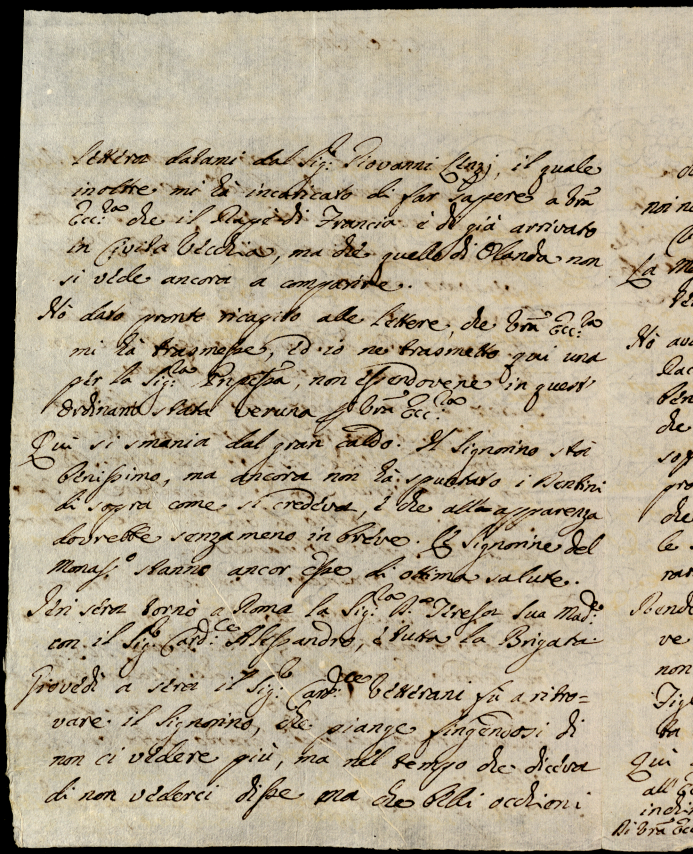 lettera datami dal Sig.r Giovanni Lenzi, il quale
inoltre mi hà incaricato di far sapere a Vrã
Ecc.za che il Rapè di Francia è di già arrivato
in Civita Vecchia, ma che quello di Olanda non
si vede ancora a comparire.
Hò dato pronto ricapito alle lettere, che Vrã Ecc.za
mi hà trasmesse, ed io ne trasmetto qui una
per la Sig.ra, non essendovene in quest'
Ordinario stata veruna p Vrã Ecc.za
Quì si smania dal gran caldo. Il Signorino stà
benissimo, ma ancora non hà spuntato i Dentini
di sopra come si credeva, e che all'apparenza
dovrebbe senzameno in breve. Le Signorine del
Monas.o stanno ancor esse di ottima salute.
Jeri sera tornò a Roma la Sig.ra D.a Teresa sua Mad.e
con il Sig.r Card.le Alessandro, e tutta la Brigata
Giovedì a sera il Sig.r Card.le Vetterani fù a ritro=
vare il Signorino, che piange fingendosi di
non ci vedere più, ma nel tempo che diceva
di non vederci disse ma che belli occhioni
noi n
La m
Hò av
che
sop
pro
che
le
Rende
ve
non
ta
Quì
all'
Di Vrã Ecc